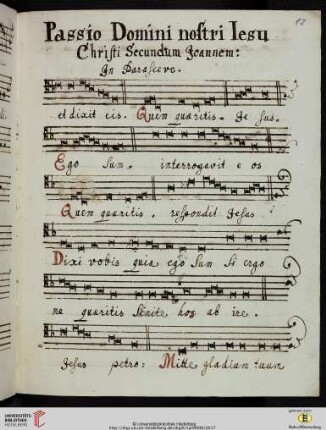 Passio Domini nostri Iesu
Christi Secundum Joannem:
In Parasceve.
et dixit eis. Quem quæritis. Je sus.
Ego sum. interrogavit e os
Quem quæritis. respondit Jesus
Dixi vobis quia ego sum Si ergo
me quæritis Sinite hos ab ire.
Jesus petro: Mitte gladium tuum
UNIVERSITÄTS-
BIBLIOTHEK
HEIDELBERG
© Universitätsbibliothek Heidelberg
Baden-Württemberg